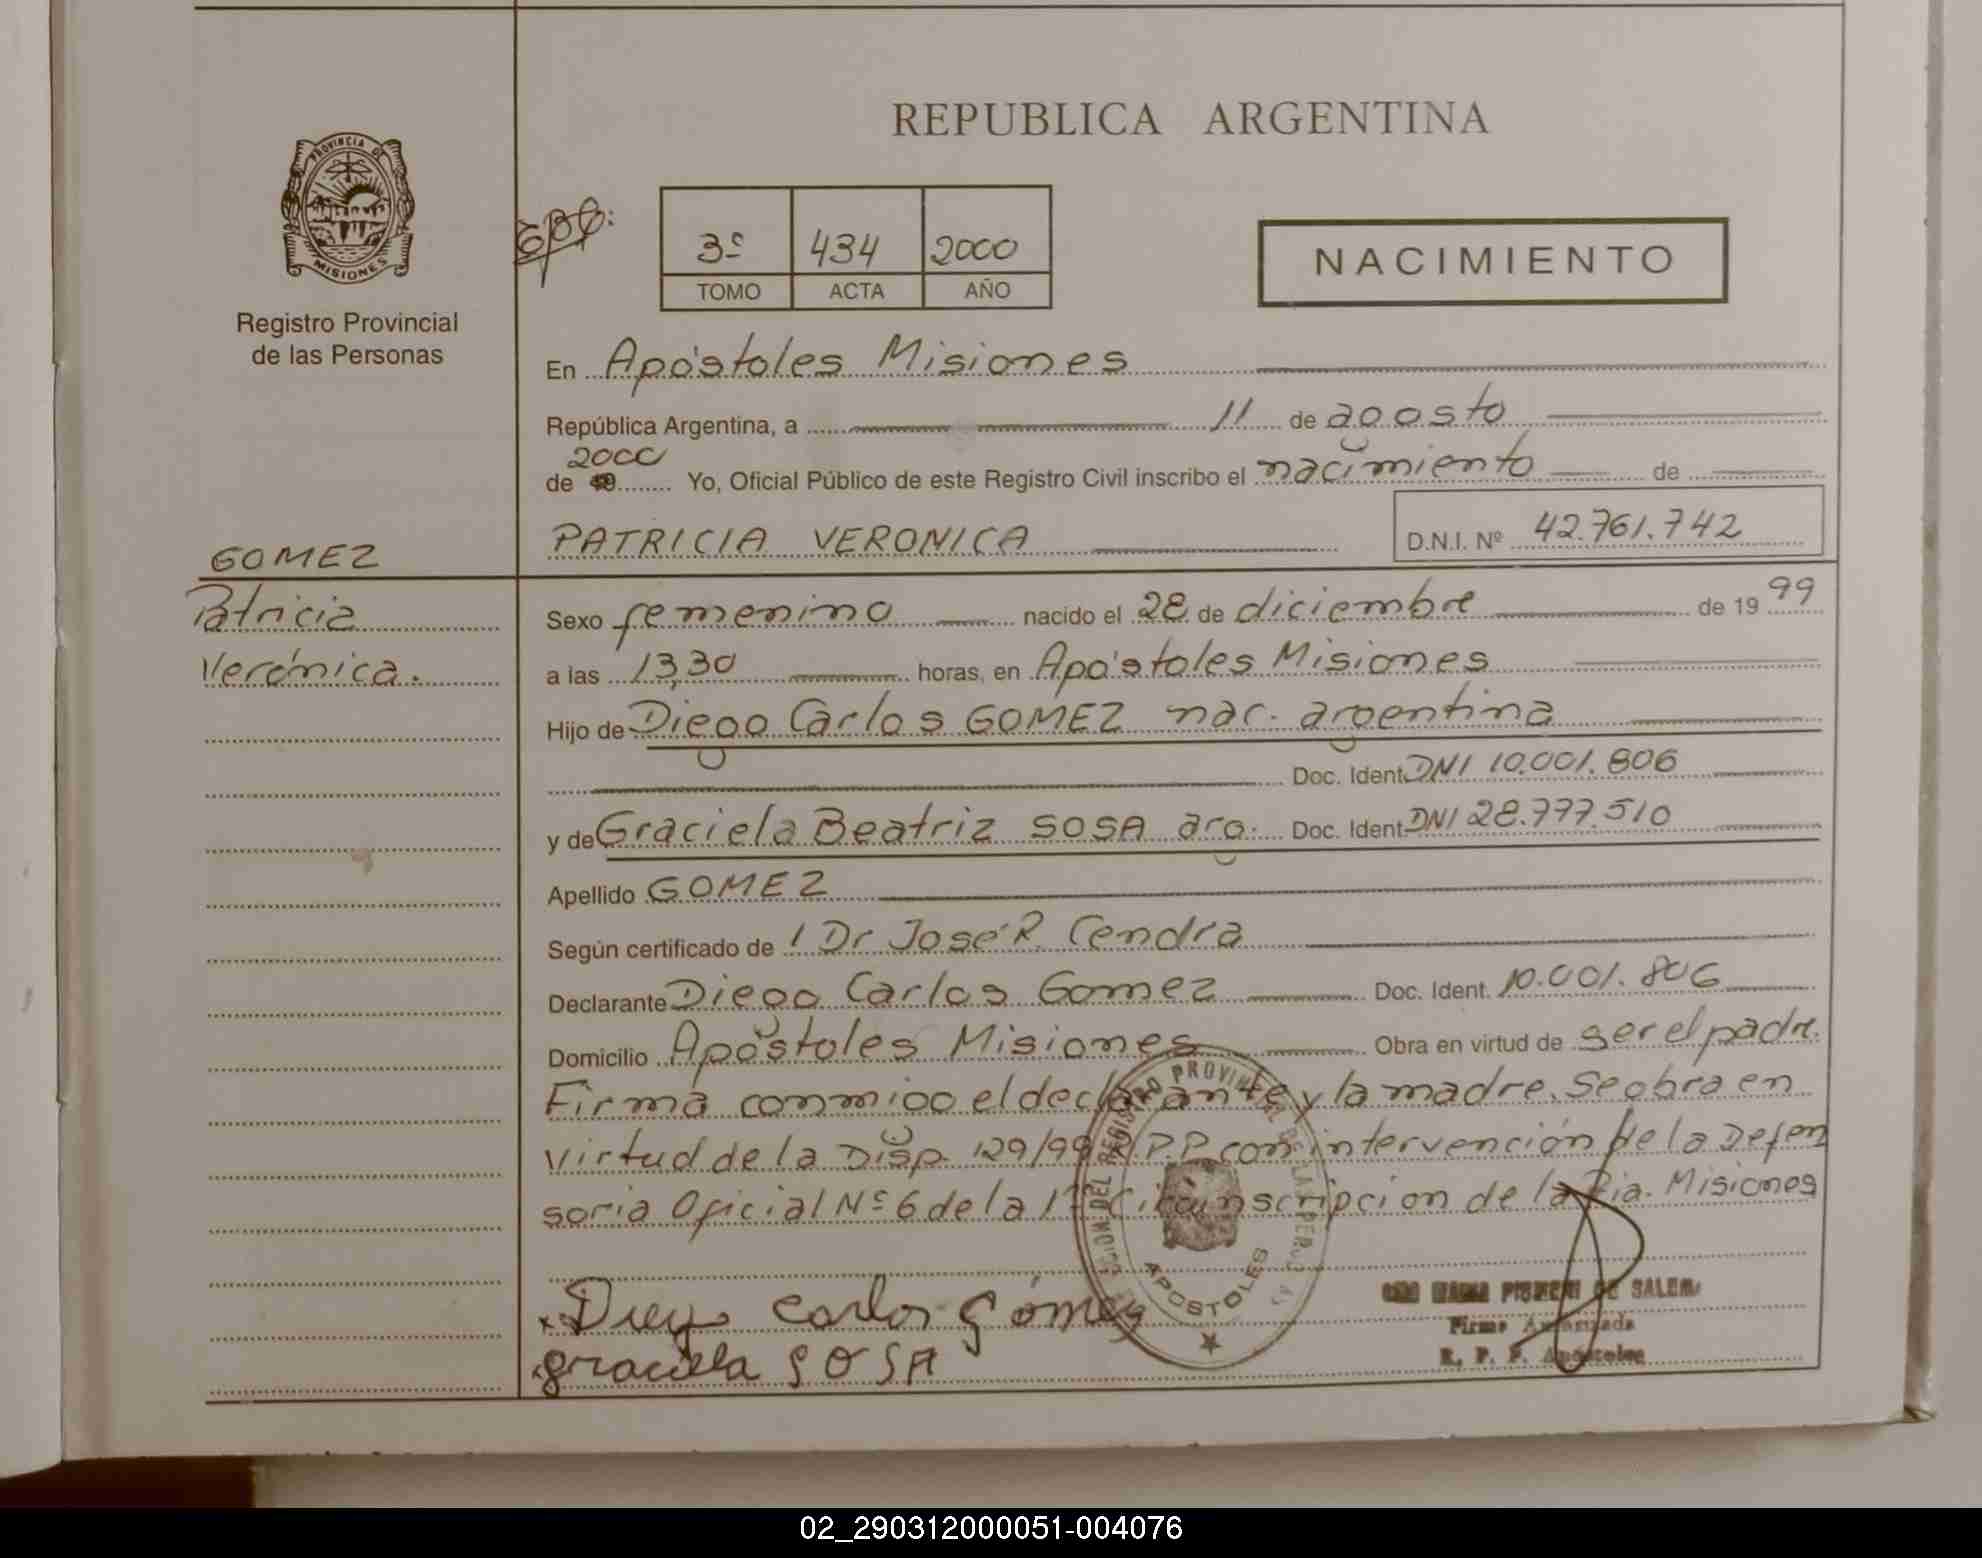 REPUBLICA ARGENTINA
PROVINCIA DE
MISIONES
Registro Provincial
de las Personas
3º 434 2000
TOMO ACTA AÑO
NACIMIENTO
En Apóstoles Misiones
República Argentina, a 11 de agosto
2000
de 19 Yo, Oficial Público de este Registro Civil inscribo el nacimiento de
PATRICIA VERONICA D.N.I. Nº 42.761.742
GOMEZ
Patricia
Verónica.
Sexo femenino nacido el 28 de diciembre de 19 99
a las 13,30 horas, en Apóstoles Misiones
Hijo de Diego Carlos GOMEZ nac. argentina
Doc. Ident. DNI 10.001.806
y de Graciela Beatriz SOSA arg. Doc. Ident. DNI 28.777.510
Apellido GOMEZ
Según certificado de Dr José R. Cendra
Declarante Diego Carlos Gomez Doc. Ident. 10.001.806
Domicilio Apóstoles Misiones Obra en virtud de ser el padre.
Firma conmigo el declarante y la madre. Se obra en
virtud de la Disp. 129/99 R.P.P. con intervención de la Defen
soria Oficial Nº 6 de la 1ª Circunscripcion de la Pia. Misiones
APOSTOLES
x Diego Carlos Gómez
x graciela SOSA
DE SALEM
Firma Autorizada
R. P. P. Apóstoles
02_290312000051-004076